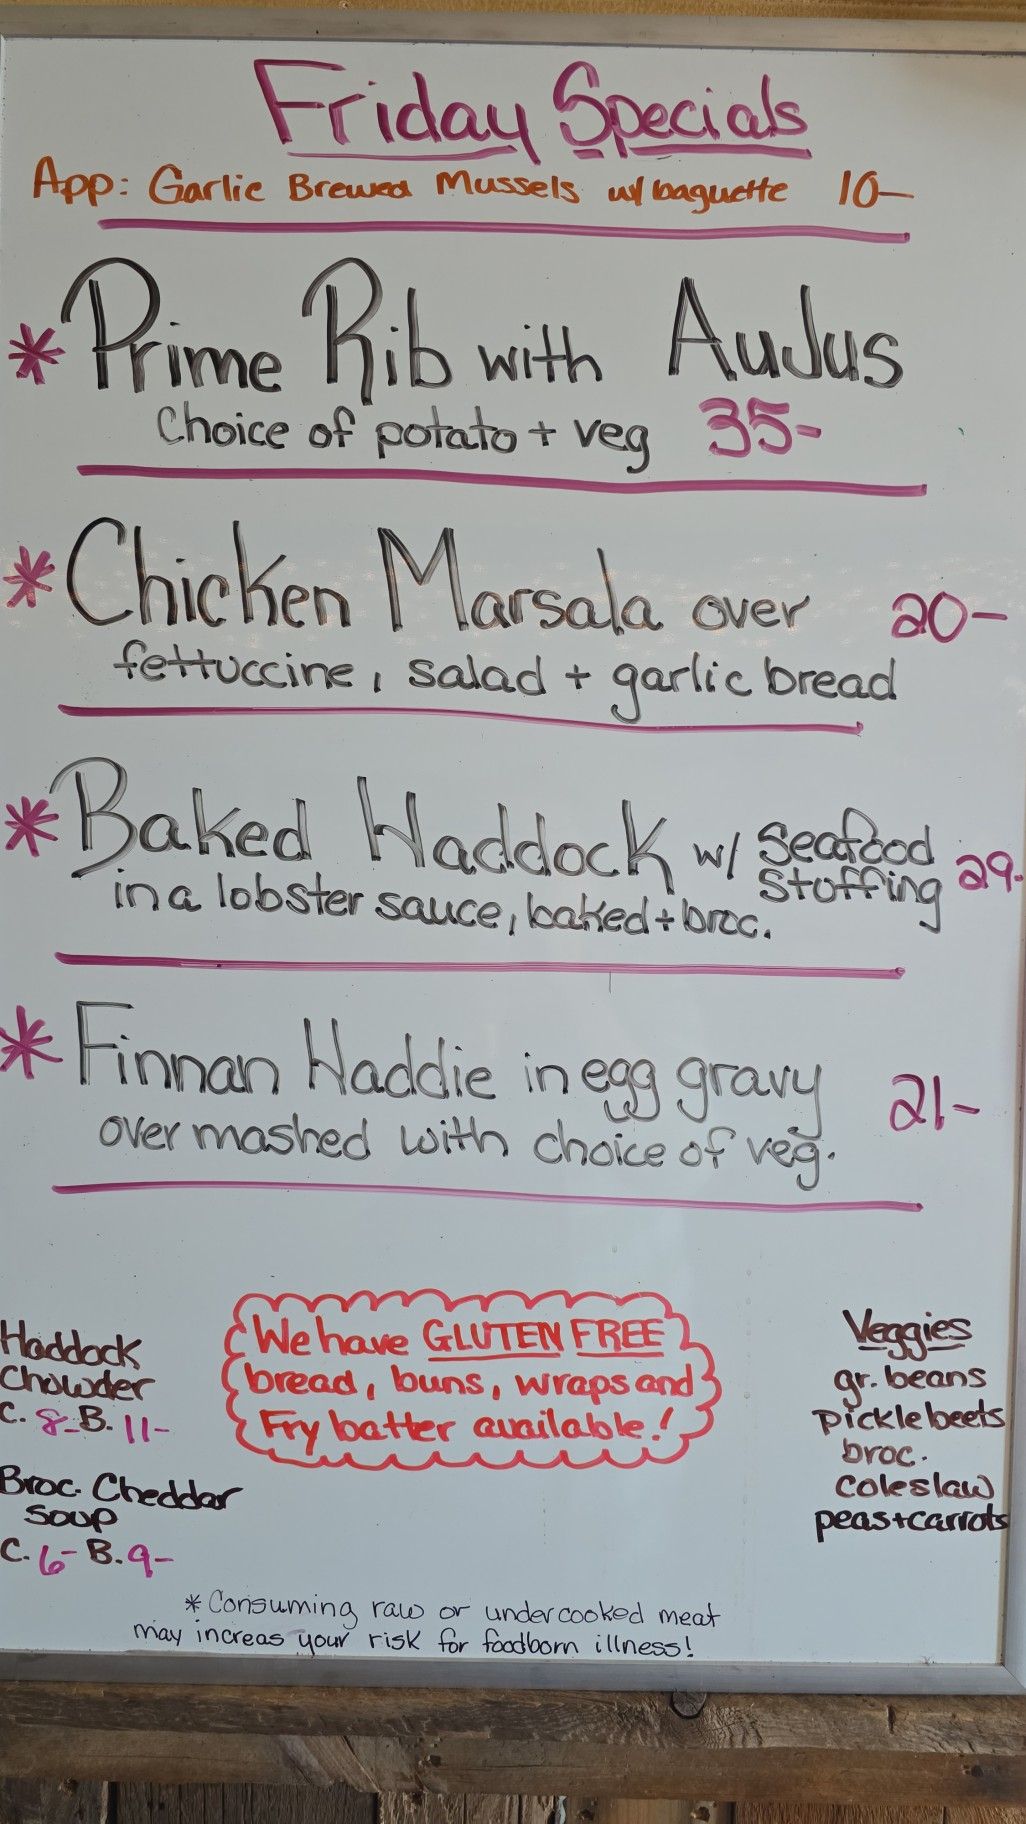 Friday Specials
App: Garlic Brewed Mussels w/ baguette 10-
*Prime Rib with AuJus
Choice of potato + veg 35-
*Chicken Marsala over 20-
fettuccine, salad + garlic bread
*Baked Haddock w/ Seafood stuffing 29-
in a lobster sauce, baked + broc.
*Finnan Haddie in egg gravy 21-
over mashed with choice of veg.
Haddock
Chowder
C. 8- B. 11-
Broc. Cheddar
soup
C. 6- B. 9-
We have GLUTEN FREE
bread, buns, wraps and
Fry batter available!
Veggies
gr. beans
pickle beets
broc.
coleslaw
peas+carrots
*Consuming raw or undercooked meat
may increas your risk for foodborn illness!